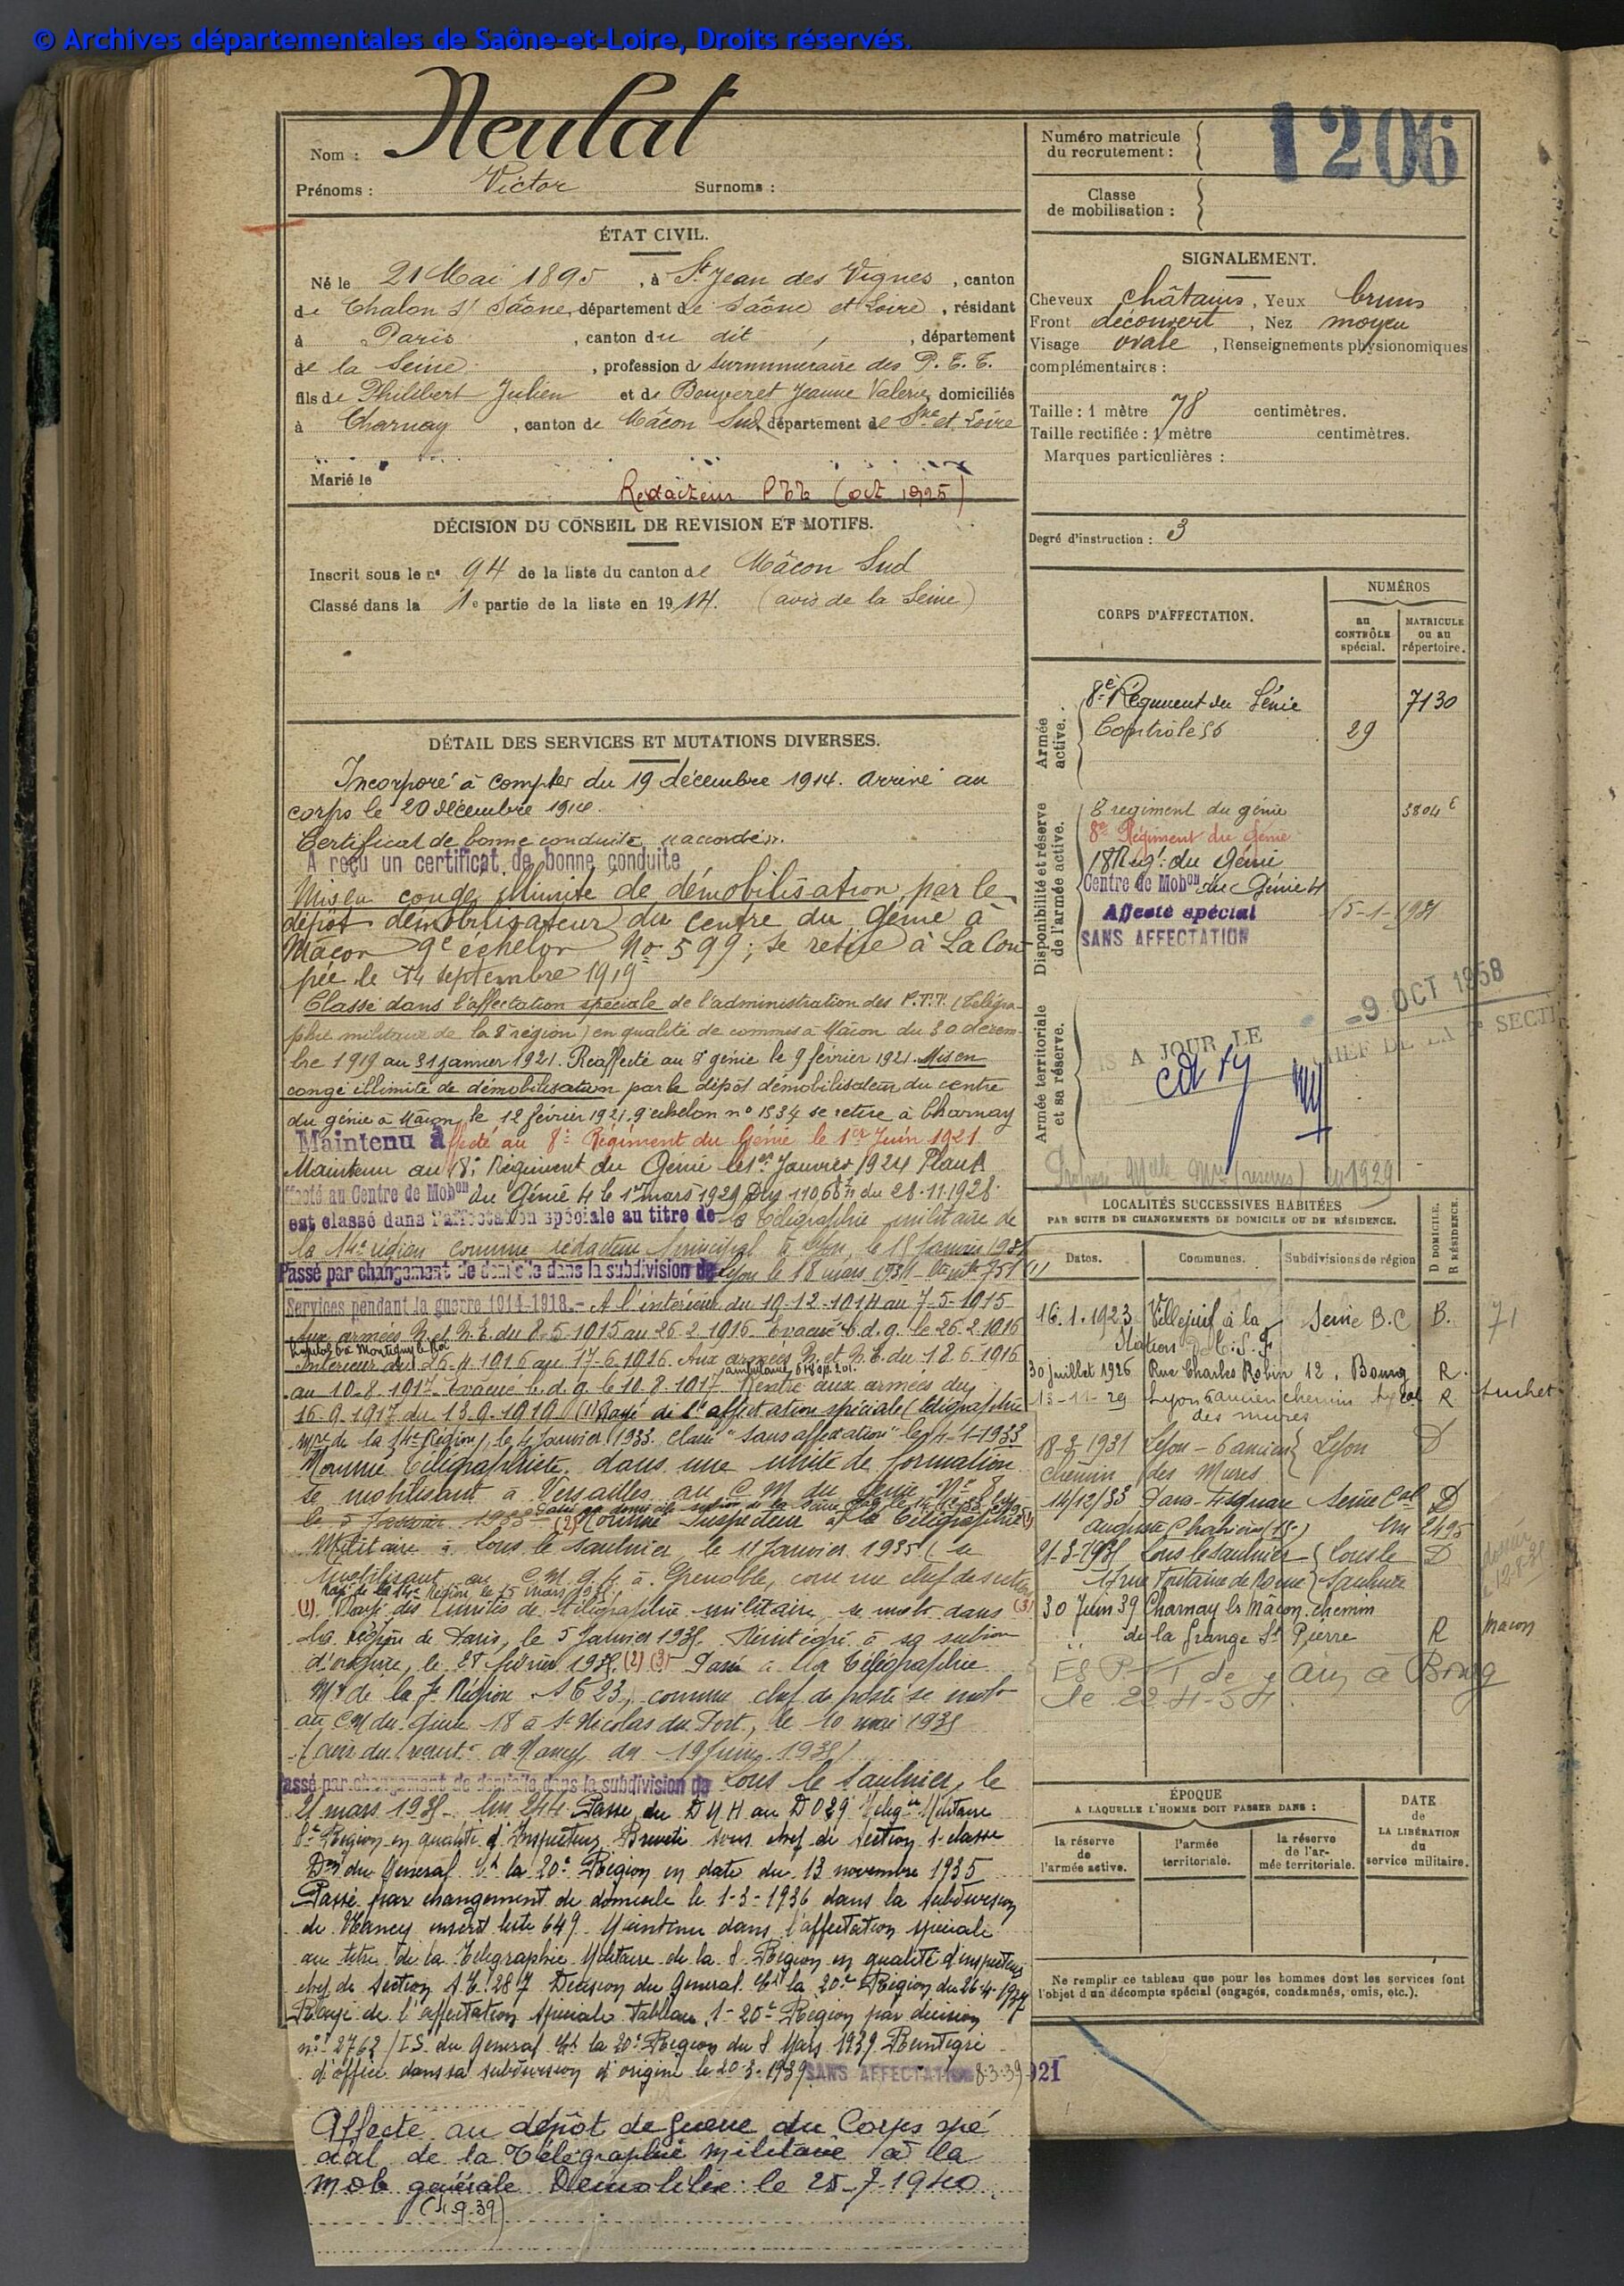 © Archives départementales de Saône-et-Loire, Droits réservés.
Nom : Neulat
Prénoms : Victor Surnoms :
Numéro matricule du recrutement : 1206
Classe de mobilisation :
ÉTAT CIVIL.
Né le 21 Mai 1895, à St Jean des Vignes, canton
de Chalon s/ Saône, département de Saône et Loire, résidant
à Paris, canton du dit, département
de la Seine, profession de surnuméraire des P.T.T.
fils de Philibert Julien et de Bouveret Jeanne Valerie, domiciliés
à Charnay, canton de Mâcon Sud, département de Sne et Loire
Marié le
Rédacteur PTT (oct 1925)
SIGNALEMENT.
Cheveux châtains, Yeux bruns
Front découvert, Nez moyen
Visage ovale, Renseignements physionomiques
complémentaires :
Taille : 1 mètre 78 centimètres.
Taille rectifiée : 1 mètre centimètres.
Marques particulières :
Degré d'instruction : 3
DÉCISION DU CONSEIL DE REVISION ET MOTIFS.
Inscrit sous le no 94 de la liste du canton de Mâcon Sud
Classé dans la 1e partie de la liste en 1914. (avis de la Seine)
DÉTAIL DES SERVICES ET MUTATIONS DIVERSES.
Incorporé à compter du 19 décembre 1914. arrivé au
corps le 20 décembre 1914.
Certificat de bonne conduite "accordé".
A reçu un certificat de bonne conduite
Mis en congé illimité de démobilisation par le
dépôt démobilisateur du centre du Génie à
Mâcon 9e échelon No 599; se retire à La Cou-
pée le 14 septembre 1919
Classé dans l'affectation spéciale de l'administration des P.T.T. (Télégra-
phie militaire de la 8e région) en qualité de commis à Mâcon du 30 décem-
bre 1919 au 31 janvier 1921. Réaffecté au 8e génie le 9 février 1921. Mis en
congé illimité de démobilisation par le dépôt démobilisateur du centre
du génie à Mâcon, le 12 février 1921, 9e échelon no 1534 se retire à Charnay
Maintenu affecté au 8e Régiment du Génie le 1er Juin 1921
Maintenu au 18e Régiment du Génie le 1er Janvier 1924 Plan A
Affecté au Centre de Mobon du Génie 4 le 1er Mars 1929 du 28.11.1928.
est classé dans l'affectation spéciale au titre de la Télégraphie militaire de
la 14e région comme rédacteur principal à Lyon, le 15 Janvier 1931
Passé par changement de domicile dans la subdivision de Lyon le 18 mars 1931
Services pendant la guerre 1914-1918.- A l'intérieur du 19-12-1914 au 7-5-1915
Aux armées N. et N.E. du 8-5-1915 au 26-2-1916 Evacué b.d.g. le 26-2-1916
Intérieur du 26-4-1916 au 17-6-1916. Aux armées N. et N.E. du 18-6-1916
au 10-8-1917 Evacué b.d.g. le 10.8.1917 Rentré aux armées du
16-9-1917 du 13-9-1919 (1) Rayé de l'affectation spéciale (télégraphie
mre de la 14e Région), le 4 Janvier 1933. Classé "sans affectation" le 4-1-1933
Nommé Télégraphiste dans une unité de formation
se mobilisant à Versailles au C M du Génie No 8
(2) Nommé Inspecteur à la Télégraphie
Militaire à Lons le Saulnier, le 11 Janvier 1935 (se
mobilisant au C.M.G. à Grenoble, comme chef de section
(1) Rayé des unités de télégraphie militaire se mob dans (3)
la région de Paris, le 5 Janvier 1935. Réintégré à sa subion
d'origine, le 25 février 1935. (2) (3) Passé à la Télégraphie
Mre de la 7e Région, comme chef de poste se mob
au CM du Génie 18 à St Nicolas du Port, le 10 mai 1935
(avis du recrut. de Nancy du 19 Juin 1935)
Passé par changement de domicile dans la subdivision de Lons le Saulnier, le
21 mars 1935 - 244 Passe du D.4.H au D029 Télégie Militaire
8e Région en qualité d'Inspecteur Breveté sous chef de section 1e classe
Don du Général Ct la 20e Région en date du 13 novembre 1935
Passé par changement de domicile le 1-3-1936 dans la subdivision
de Nancy inscrit liste 649. Maintenu dans l'affectation spéciale
au titre de la Télégraphie Militaire de la 8e Région en qualité d'inspecteur
chef de section A.C. 287 Décision du Général Ct la 20e Région du 26-4-1937
Rayé de l'affectation spéciale Tableau 1 - 20e Région par décision
no 2762/I.S. du Général Ct la 20e Région du 8 Mars 1939. Réintégré
d'office dans sa subdivision d'origine le 20-3-1939. SANS AFFECTATION 8-3-39 921
Affecté au dépôt de guerre du Corps spé
cial de la Télégraphie militaire à la
mob générale Démobilisé le 25-7-1940.
(4-9-39)
CORPS D'AFFECTATION.
NUMÉROS
au CONTRÔLE spécial.
MATRICULE ou au répertoire.
Armée active.
8e Régiment du Génie 7130
29
Disponibilité et réserve de l'armée active.
8 régiment du génie 3804
8e Régiment du Génie
18 Regt. du Génie
Centre de Mobon du Génie 4
Affecté spécial 15-1-1931
SANS AFFECTATION
Armée territoriale et sa réserve.
-9 OCT 1958
MIS A JOUR LE
CHEF DE LA SECTI
1929
LOCALITÉS SUCCESSIVES HABITÉES
PAR SUITE DE CHANGEMENTS DE DOMICILE OU DE RÉSIDENCE.
Dates. Communes. Subdivisions de région D DOMICILE. R RÉSIDENCE.
16.1.1923 Villejuif à la Seine B.C D. 71
Station T.S.F
30 juillet 1926 Rue Charles Robin 12, Bourg R.
13-11-29 Lyon 6 ancien chemin R
des mures
18-3-1931 Lyon - 6 ancien Lyon D
chemin des Mures
14/12/33 Paris - 4 square Seine Cal D
auguste Chabrières (15e) 2495
21-3-1935 Lons le Saulnier Lons le D
17 rue Fontaine de Rome Saulnier
30 Juin 39 Charnay ls Mâcon. chemin
de la Grange St Pierre R Macon
ES PTT de à Bourg
le 22-4-54
ÉPOQUE
A LAQUELLE L'HOMME DOIT PASSER DANS :
la réserve de l'armée active.
l'armée territoriale.
la réserve de l'armée territoriale.
DATE de LA LIBÉRATION du service militaire.
Ne remplir ce tableau que pour les hommes dont les services font
l'objet d'un décompte spécial (engagés, condamnés, omis, etc.).